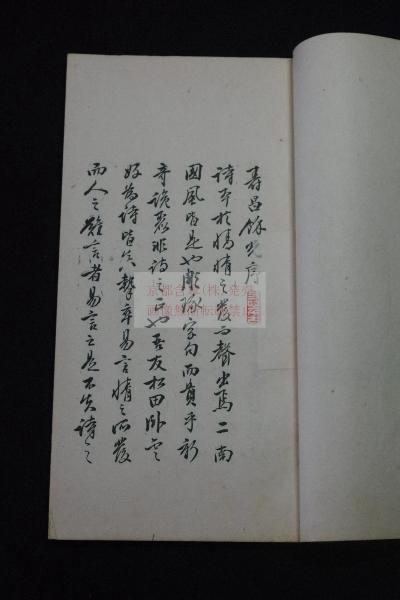 壽昌餘光序
詩本於情情之發而聲出焉二南
國風皆是也雕琢字句而貴乎新
奇詭非詩之正也吾友松田卧雲
好為詩皆率易言情之所發
而人之難言者易言之是不失詩之
画像無断転載禁止